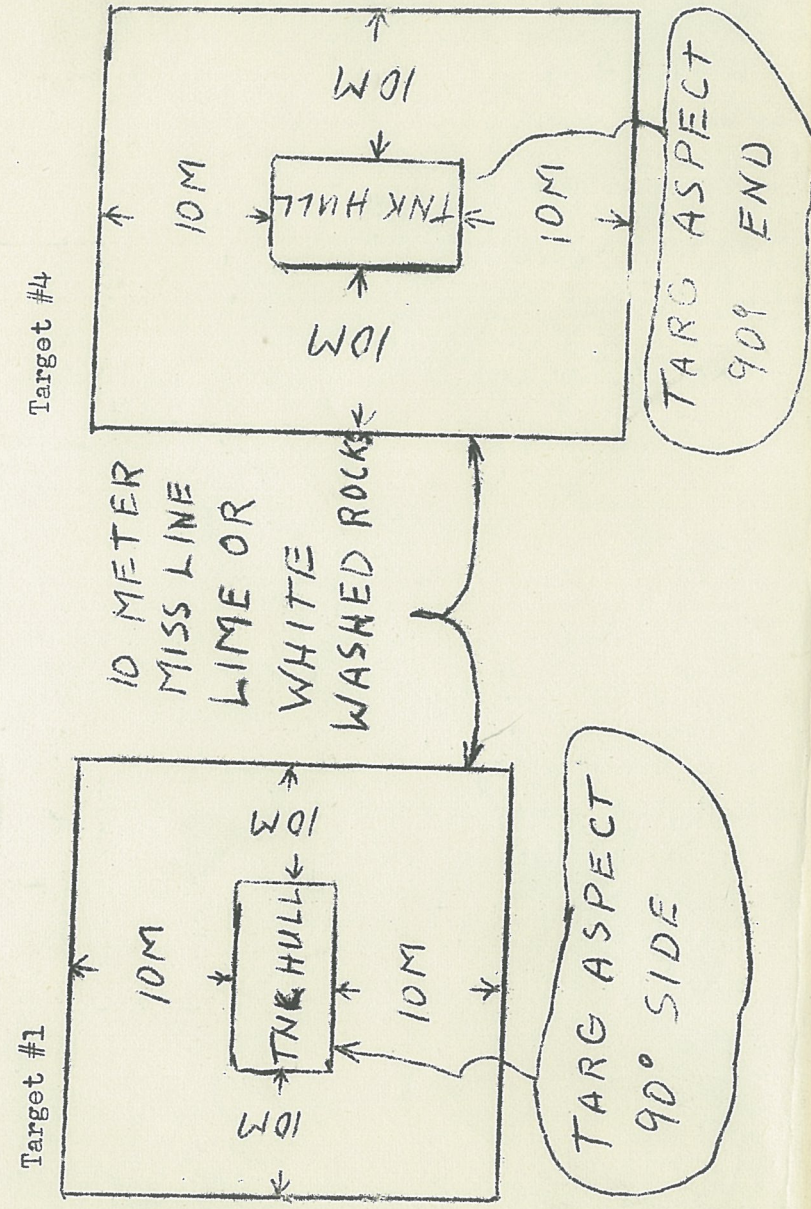 Target #1
10M
10M
TNK HULL
10M
10M
TARG ASPECT
90° SIDE
10 METER
MISS LINE
LIME OR
WHITE
WASHED ROCKS
Target #4
10M
10M
TNK HULL
10M
10M
TARG ASPECT
909 END